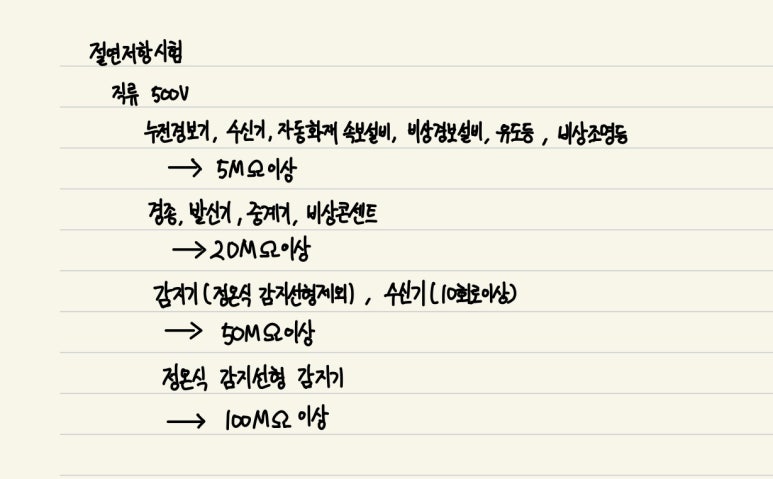 절연저항시험
직류 500V
누전경보기, 수신기, 자동화재 속보설비, 비상경보설비, 유도등, 비상조명등
→ 5MΩ이상
경종, 발신기, 중계기, 비상콘센트
→ 20MΩ이상
감지기(정온식 감지선형제외), 수신기(10회로이상)
→ 50MΩ이상
정온식 감지선형 감지기
→ 100MΩ 이상